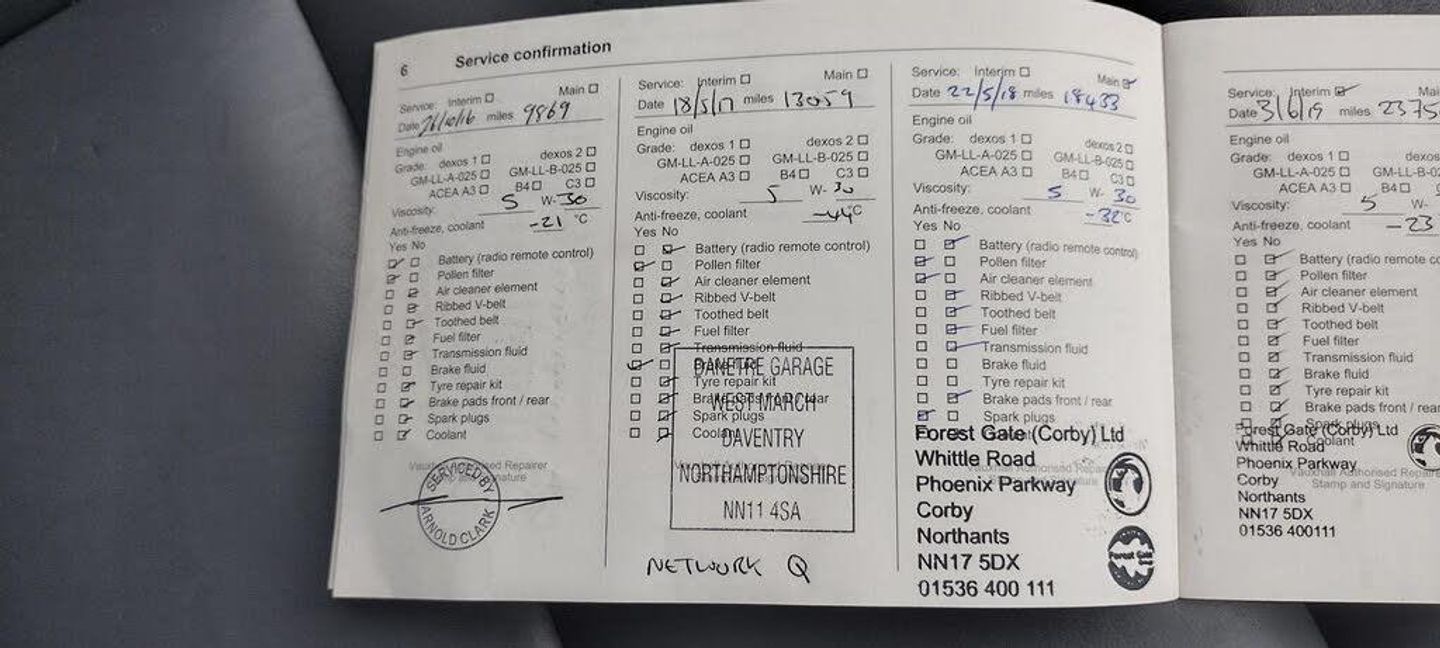 6 Service confirmation
Service: Interim Main
Date 26/10/16 miles 9869
Engine oil
Grade: dexos 1 dexos 2
GM-LL-A-025 GM-LL-B-025
ACEA A3 B4 C3
Viscosity: 5 W- 30
Anti-freeze, coolant -21 °C
Yes No
Battery (radio remote control)
Pollen filter
Air cleaner element
Ribbed V-belt
Toothed belt
Fuel filter
Transmission fluid
Brake fluid
Tyre repair kit
Brake pads front / rear
Spark plugs
Coolant
SERVICED BY
ARNOLD CLARK
Service: Interim Main
Date 18/5/17 miles 13059
Engine oil
Grade: dexos 1 dexos 2
GM-LL-A-025 GM-LL-B-025
ACEA A3 B4 C3
Viscosity: 5 W- 30
Anti-freeze, coolant -44°C
Yes No
Battery (radio remote control)
Pollen filter
Air cleaner element
Ribbed V-belt
Toothed belt
Fuel filter
Transmission fluid
Brake fluid
Tyre repair kit
Brake pads front / rear
Spark plugs
Coolant
DANETRE GARAGE
WEST MARCH
DAVENTRY
NORTHAMPTONSHIRE
NN11 4SA
NETWORK Q
Service: Interim Main
Date 22/5/18 miles 18433
Engine oil
Grade: dexos 1 dexos 2
GM-LL-A-025 GM-LL-B-025
ACEA A3 B4 C3
Viscosity: 5 W- 30
Anti-freeze, coolant -32°C
Yes No
Battery (radio remote control)
Pollen filter
Air cleaner element
Ribbed V-belt
Toothed belt
Fuel filter
Transmission fluid
Brake fluid
Tyre repair kit
Brake pads front / rear
Spark plugs
Forest Gate (Corby) Ltd
Whittle Road
Phoenix Parkway
Corby
Northants
NN17 5DX
01536 400 111
Forest Gate
Service: Interim Mai
Date 3/6/19 miles 2375
Engine oil
Grade: dexos 1 dexos
GM-LL-A-025 GM-LL-B-02
ACEA A3 B4
Viscosity: 5 W-
Anti-freeze, coolant -23
Yes No
Battery (radio remote co
Pollen filter
Air cleaner element
Ribbed V-belt
Toothed belt
Fuel filter
Transmission fluid
Brake fluid
Tyre repair kit
Brake pads front / rear
Spark plugs
Coolant
Forest Gate (Corby) Ltd
Whittle Road
Phoenix Parkway
Corby
Northants
NN17 5DX
01536 400111
Vauxhall Authorised Repaire
Stamp and Signature